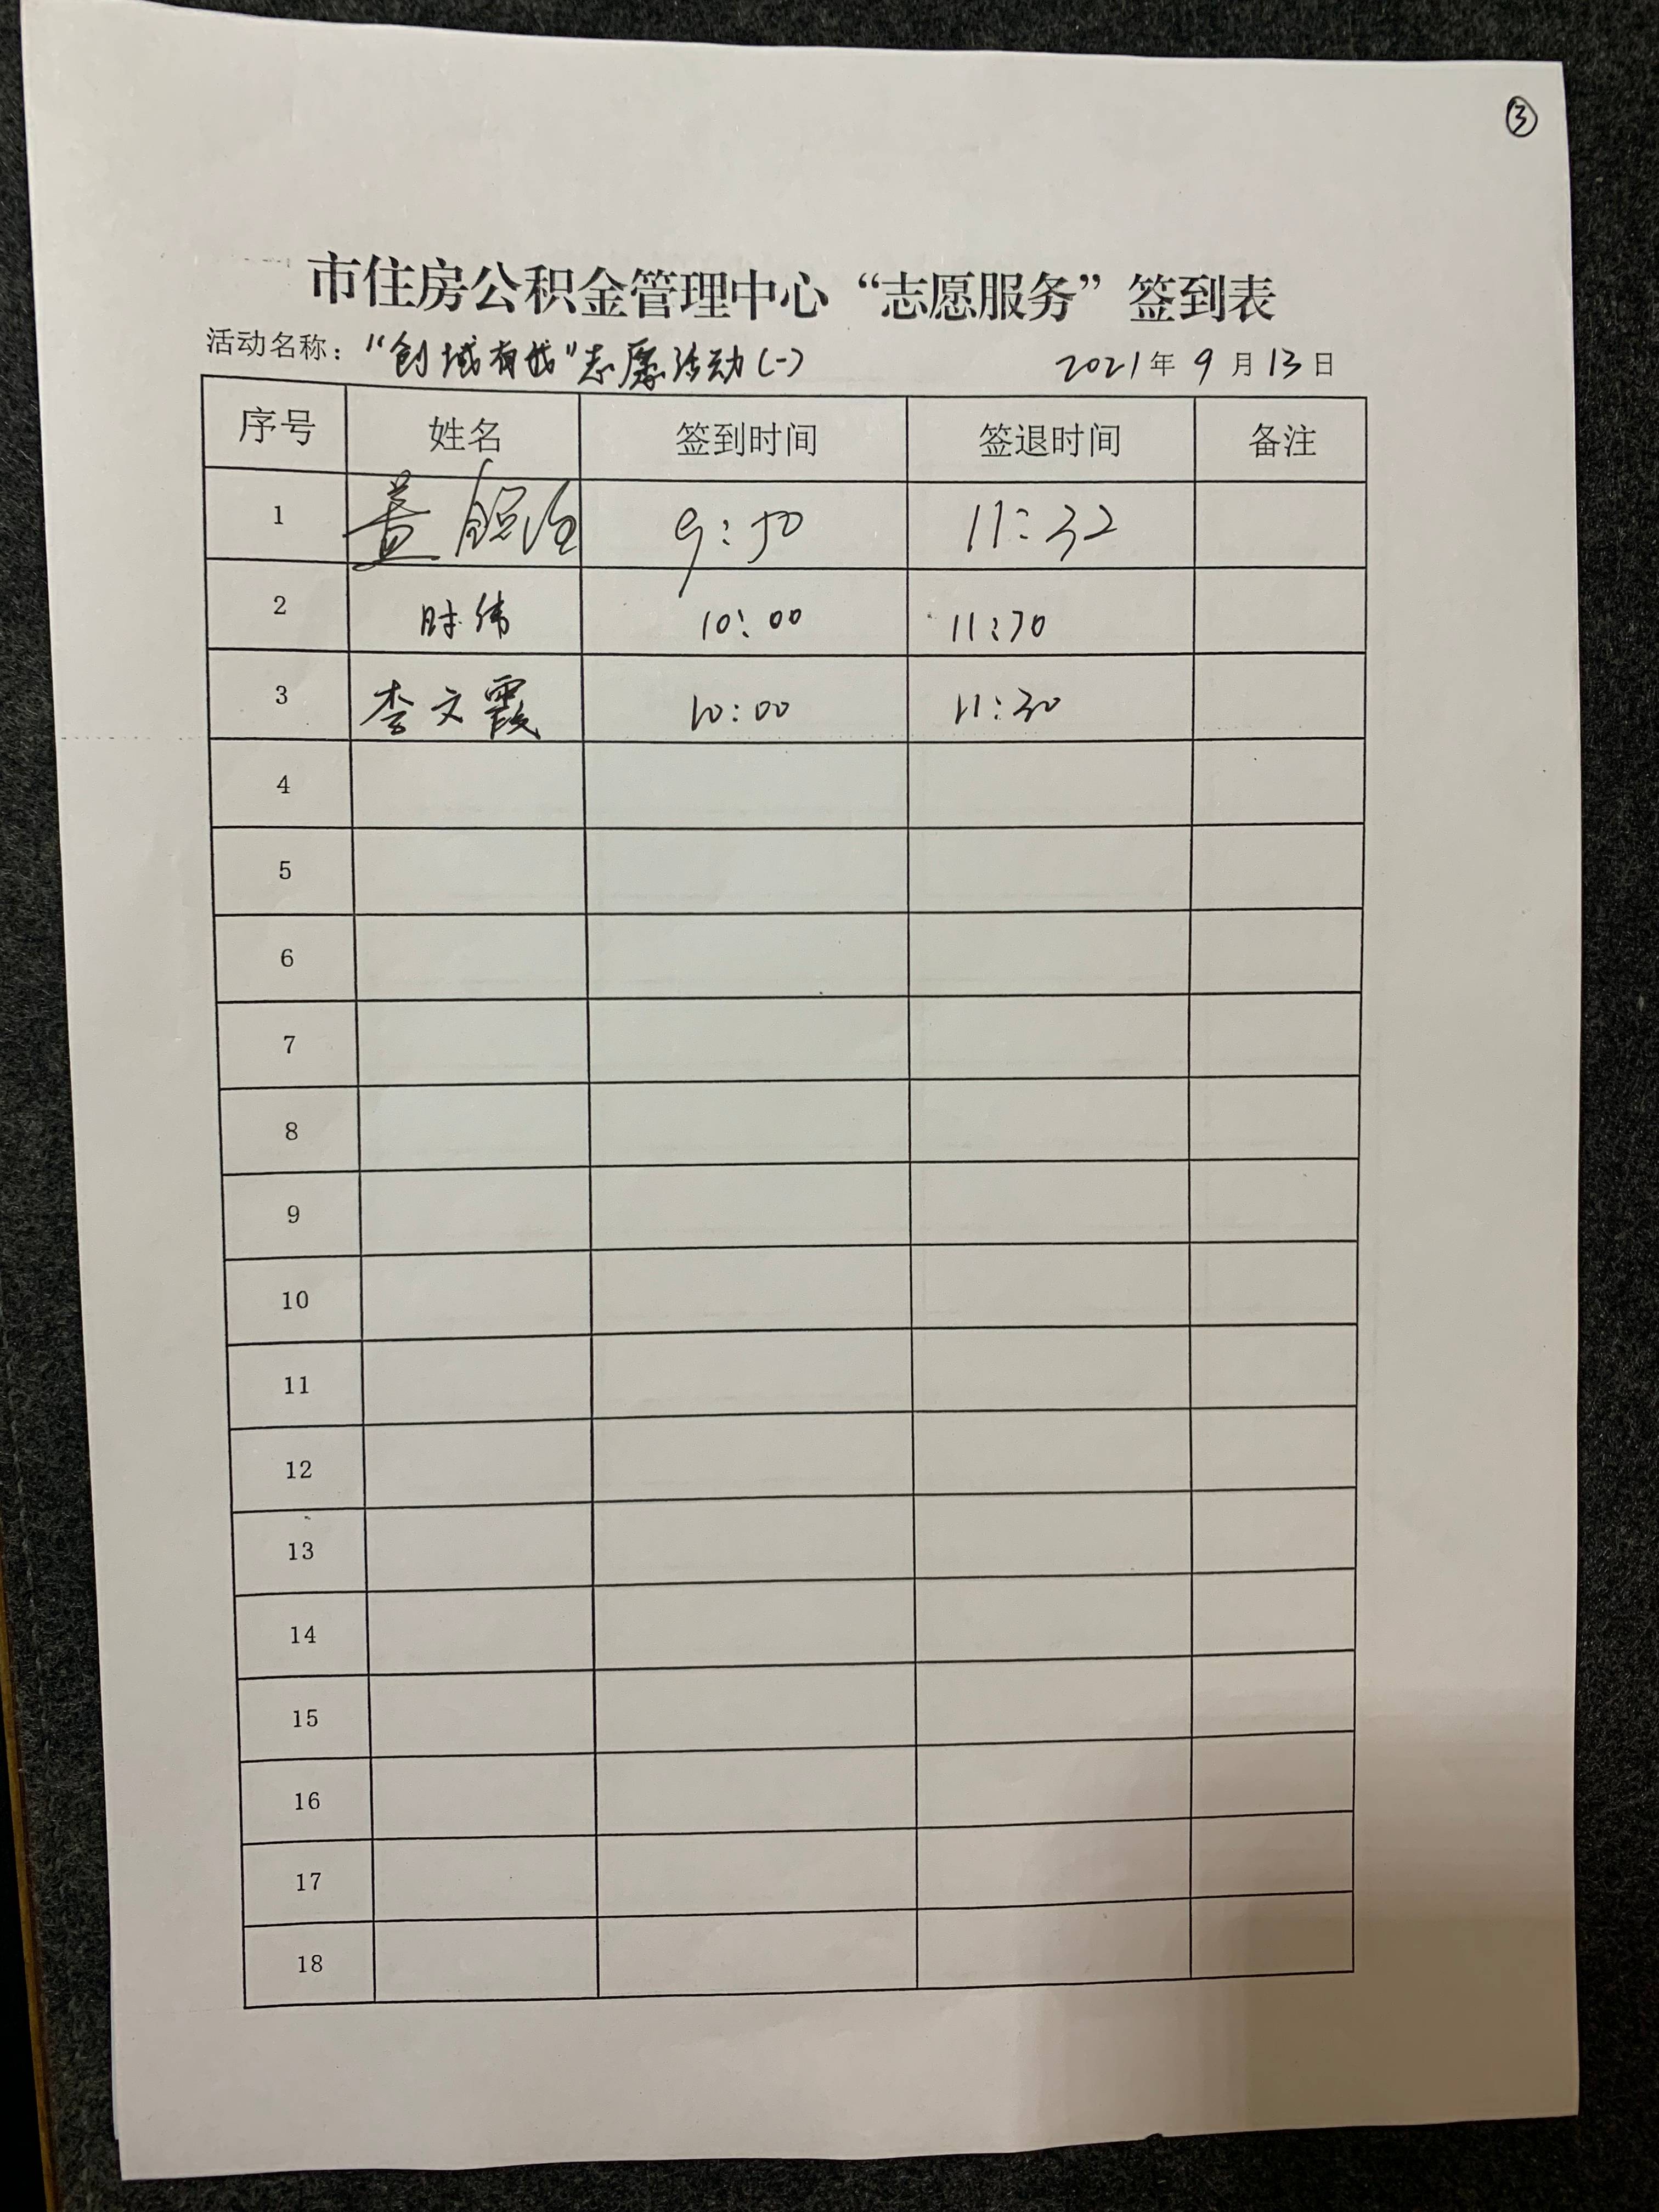 ③
市住房公积金管理中心“志愿服务”签到表
活动名称：“创城有我”志愿活动(一) 2021年9月13日
序号 姓名 签到时间 签退时间 备注
1 盖 9:50 11:32
2 时伟 10:00 11:30
3 李文霞 10:00 11:30
4
5
6
7
8
9
10
11
12
13
14
15
16
17
18